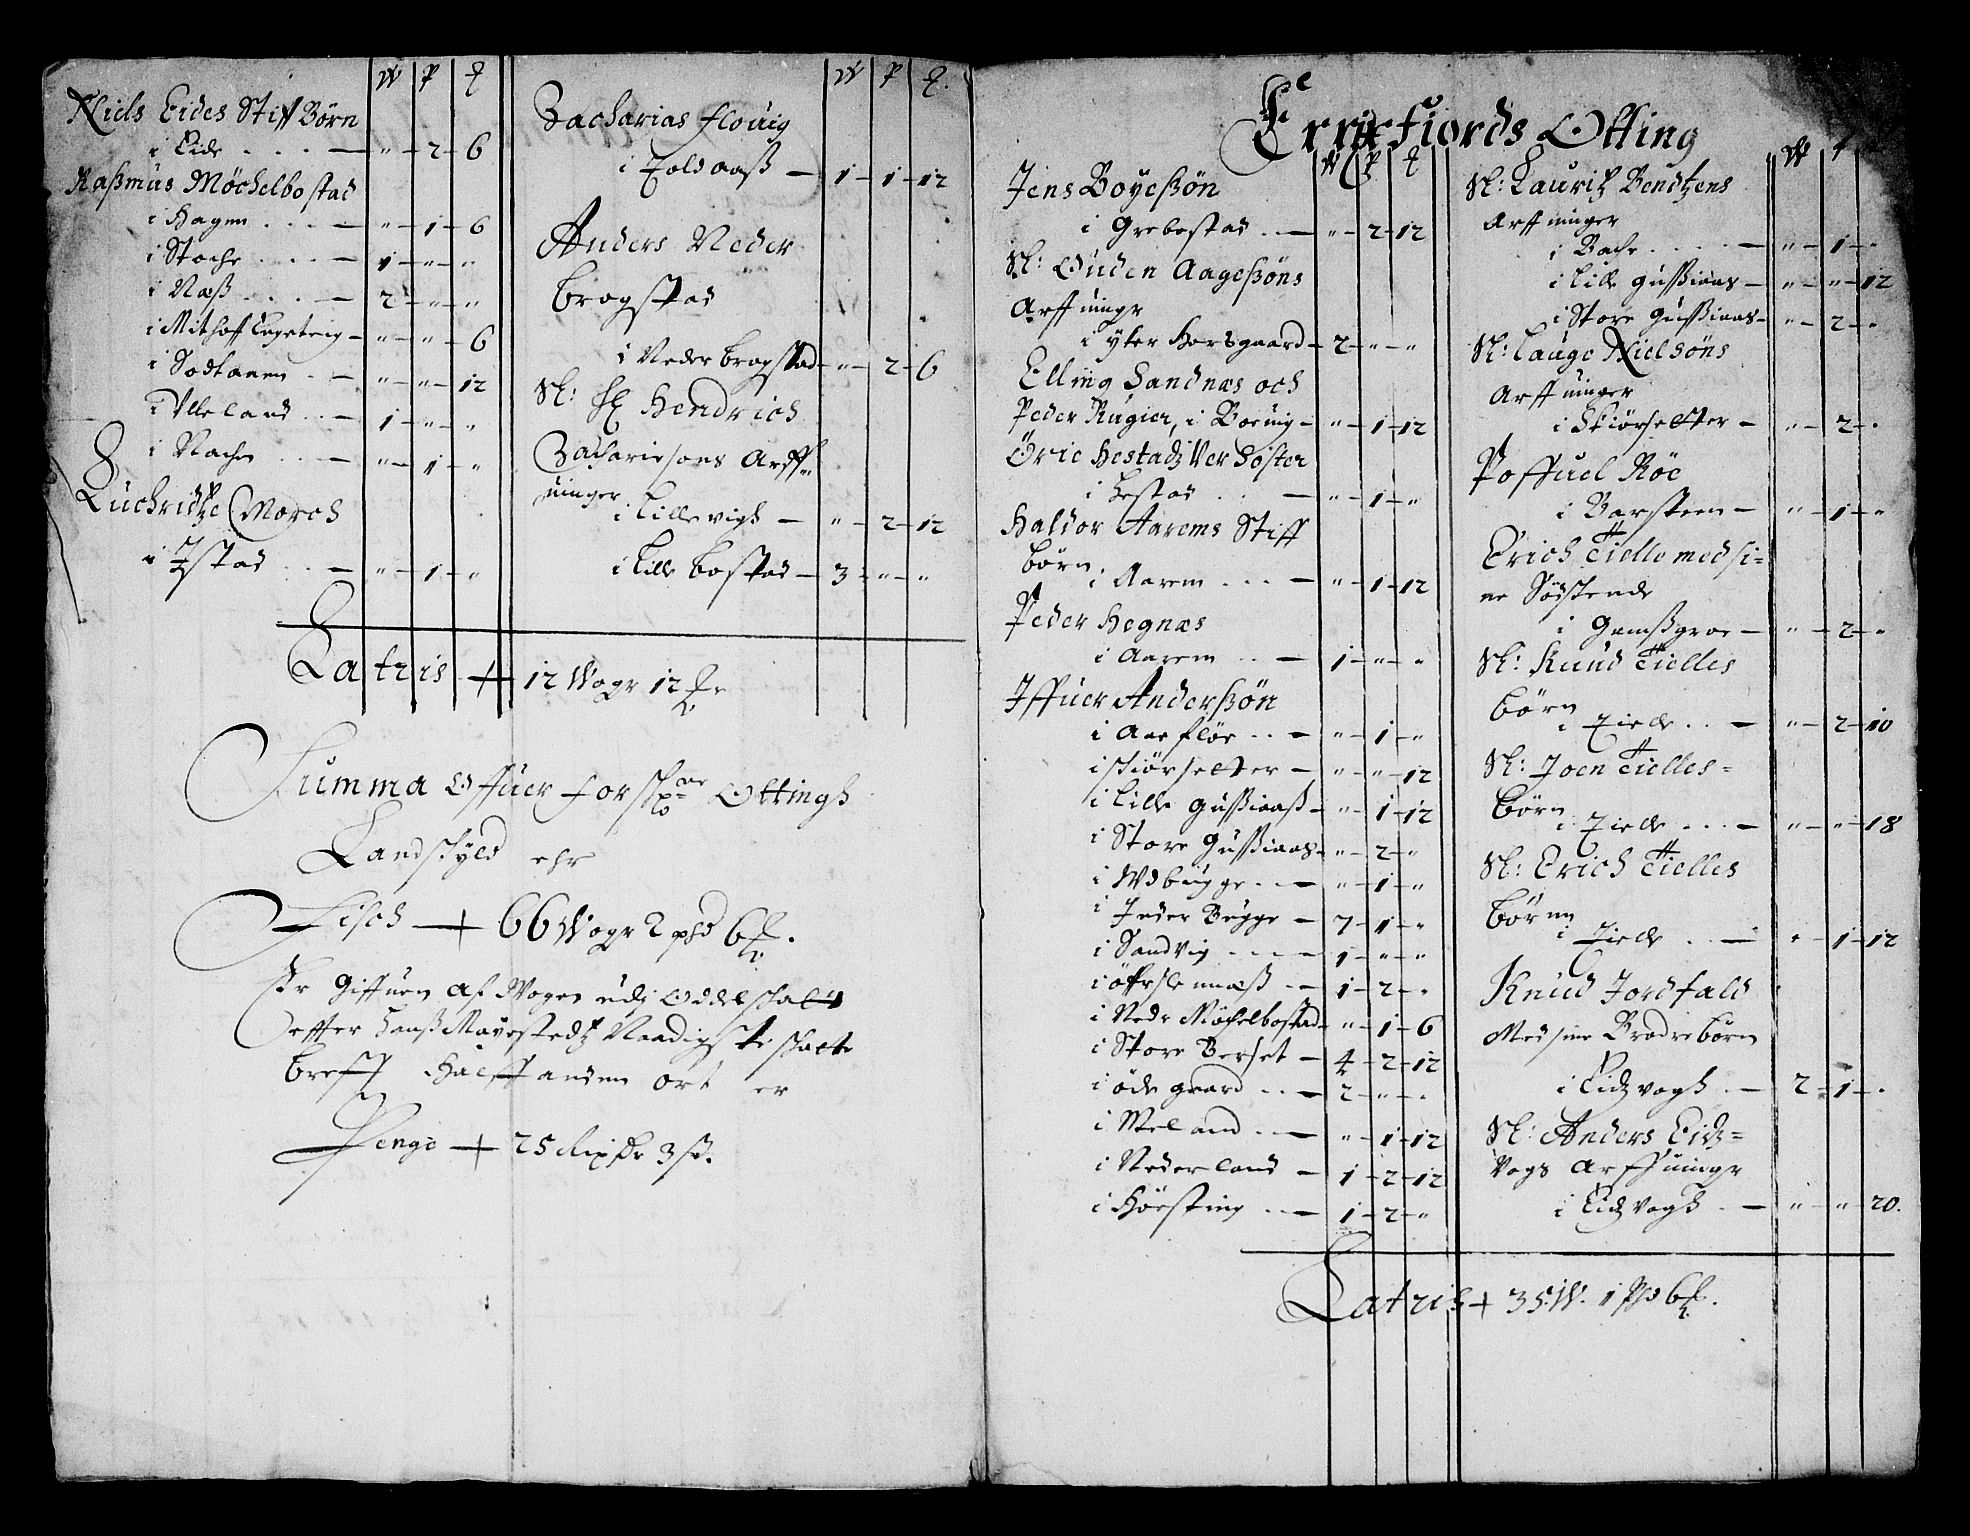 W P ℔
Niels Eides Stiff Børn
i Eide . . . . — " – 2 – 6
Rasmus Møchelbostad
i Hagen . . . — " – 1 – 6
i Stoche . . . — 1 – " – "
i Næß . . . — 2 – " – "
i Mithoff Lageteig – " – " – 6
i Sodtanem . . — " – " – 12
i Ulleland . . — 1 – " – "
i Nache . . . — " – 1 – "
Luchridtze Morch
i Istad . . — " – 1 – "
W P ℔.
Zacharias Flouig
i Toldaaß — 1 – 1 – 12
Anders Neder
Brogstad
i Nedre Brogstad – " – 2 – 6
Sl: Hr Hendrich
Zachariesøns Arff-
uinger
i Lillevigh — " – 2 – 12
i Lille Bostad – 3 – " – "
Latris + 12 Woger 12 ℔r
Summa Offuer forschne Ottingh
Landschyld ehr
Fisch + 66 Woger 2 pd 6 ℔.
Er Giffuen af Wogen udj Oddelschatt
effter Hanß Mayestedtz Naadigste schatte
breff halffanden ort er
Penge + 25 Rixdr 3 ß.
Errixfiords Otting
W P ℔
Jens Boyesßøn
i Grebostad . . — " – 2 – 12
Sl: Ouden Aageßøns
Arffuinger
i ytter Horsgaard – 2 – " – "
Elling Sandnæs och
Peder Rugier, i Boeuig – " – 1 – 12
Öric Hestadz Ver Søster
i Hestad . . — " – 1 – "
Haldor Aarems Stiff
børn
i Aarem . . . — " – 1 – 12
Peder Hegnæs
i Aarem . . — 1 – " – "
Iffuer Anderßøn
i Aarflöe . . — " – 1 – "
i schiørsetter — " – " – 12
i Lille Gußiaaß – " – 1 – 12
i Store Gußiaas – " – 2 – "
i Wdbugge . . — " – 1 – "
i Inder Bugge – 7 – 1 – "
i Sandvig . . . — 1 – " – "
i øffuslennæß . . – 1 – 2 – "
i Nedr Møchelbostad – " – 1 – 6
i Store Berset – 4 – 2 – 12
i öde gaard . . — 2 – " – "
i Meland . . — " – 1 – 12
i Nederland – 1 – 2 – 12
i Hörsting . . — 1 – 2 – "
W
Sl: Lauritz Bendtzens
Arffuinger
i Bache . . . . — " – 1 – "
i Lille Gußiaas – " – " – 12
i Store Gußiaas – " – 2 – "
Sl: Lauge Nielsöns
Arffuinger
i Skiörsetter – " – 2 – "
Poffuel Röe
i Barsteen – " – 1 – "
Erich Tielle med si-
ne Söskende
i Gamßgroe – " – 2 – "
Sl: Knud Tielles
børn
i Tielle . . — " – 2 – 10
Sl: Joen Tielles-
børn
i Tielle . . . — " – " – 18
Sl: Erich Tielles
børnn
i Tielle . . — " – 1 – 12
Knud Jordfald
Med sine Brodre børn
i Eidzvogh . . — 2 – 1 – "
Sl: Anders Eidz-
vogs Arffuinger
i Eidzvogh . — " – " – 20.
Latris + 35 W. 1 Pd 6 ℔.